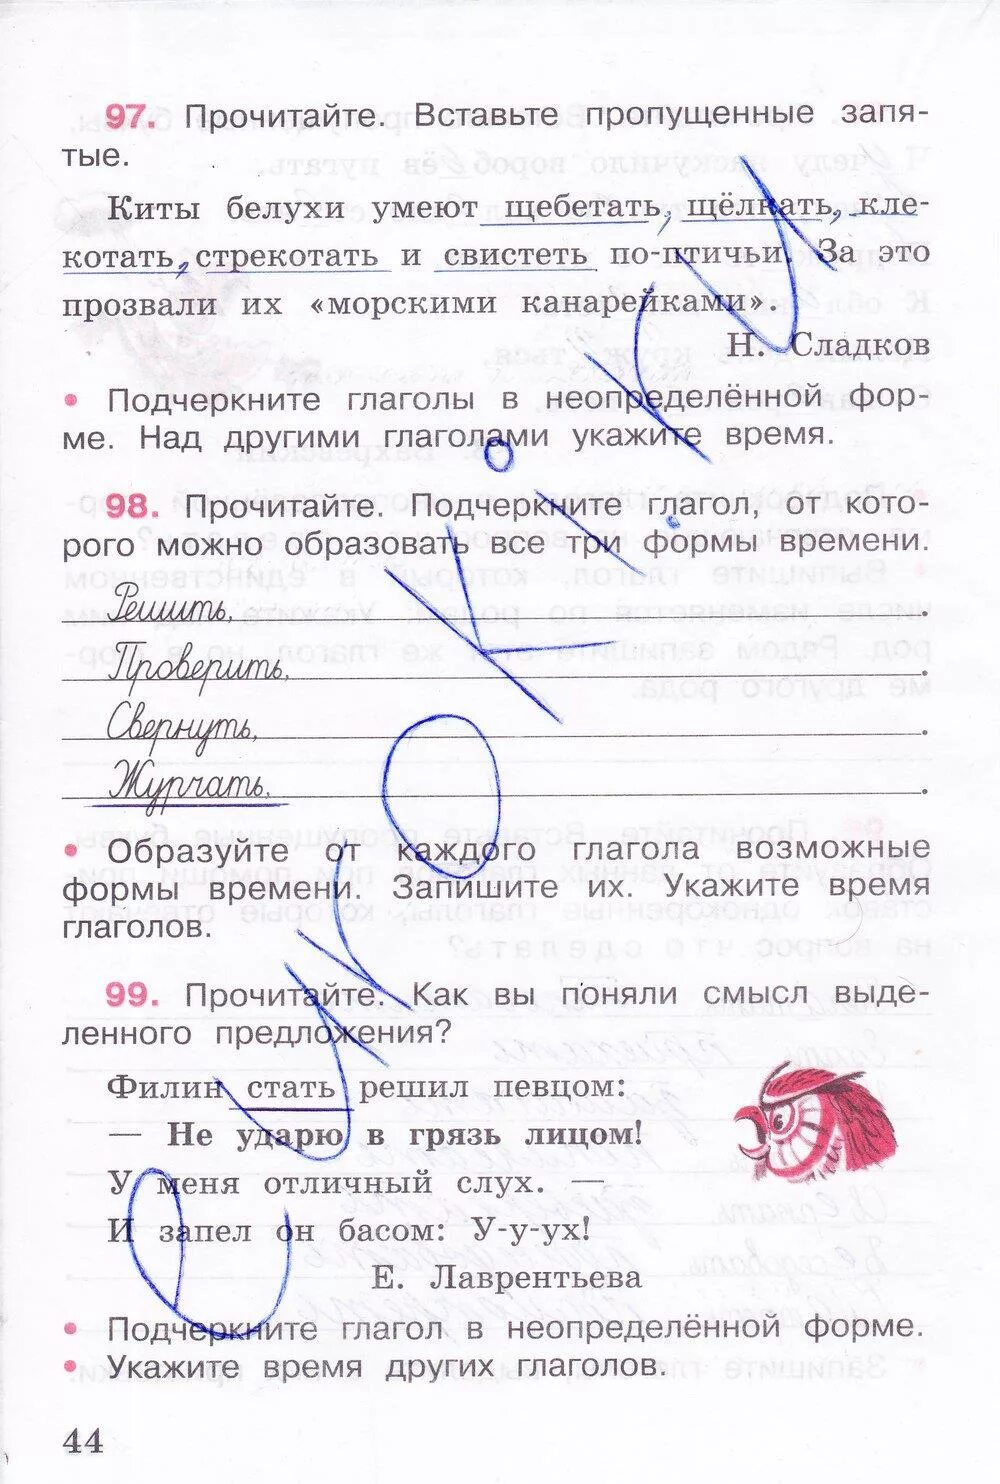 97. Прочитайте. Вставьте пропущенные запя-
тые.
Киты белухи умеют щебетать, щёлкать, кле-
котать, стрекотать и свистеть по-птичьи. За это
прозвали их «морскими канарейками».
Н. Сладков
• Подчеркните глаголы в неопределённой фор-
ме. Над другими глаголами укажите время.
98. Прочитайте. Подчеркните глагол, от кото-
рого можно образовать все три формы времени.
Решить, .
Проверить, .
Свернуть, .
Журчать, .
• Образуйте от каждого глагола возможные
формы времени. Запишите их. Укажите время
глаголов.
99. Прочитайте. Как вы поняли смысл выде-
ленного предложения?
Филин стать решил певцом:
— Не ударю в грязь лицом!
У меня отличный слух. —
И запел он басом: У-у-ух!
Е. Лаврентьева
• Подчеркните глагол в неопределённой форме.
• Укажите время других глаголов.
44